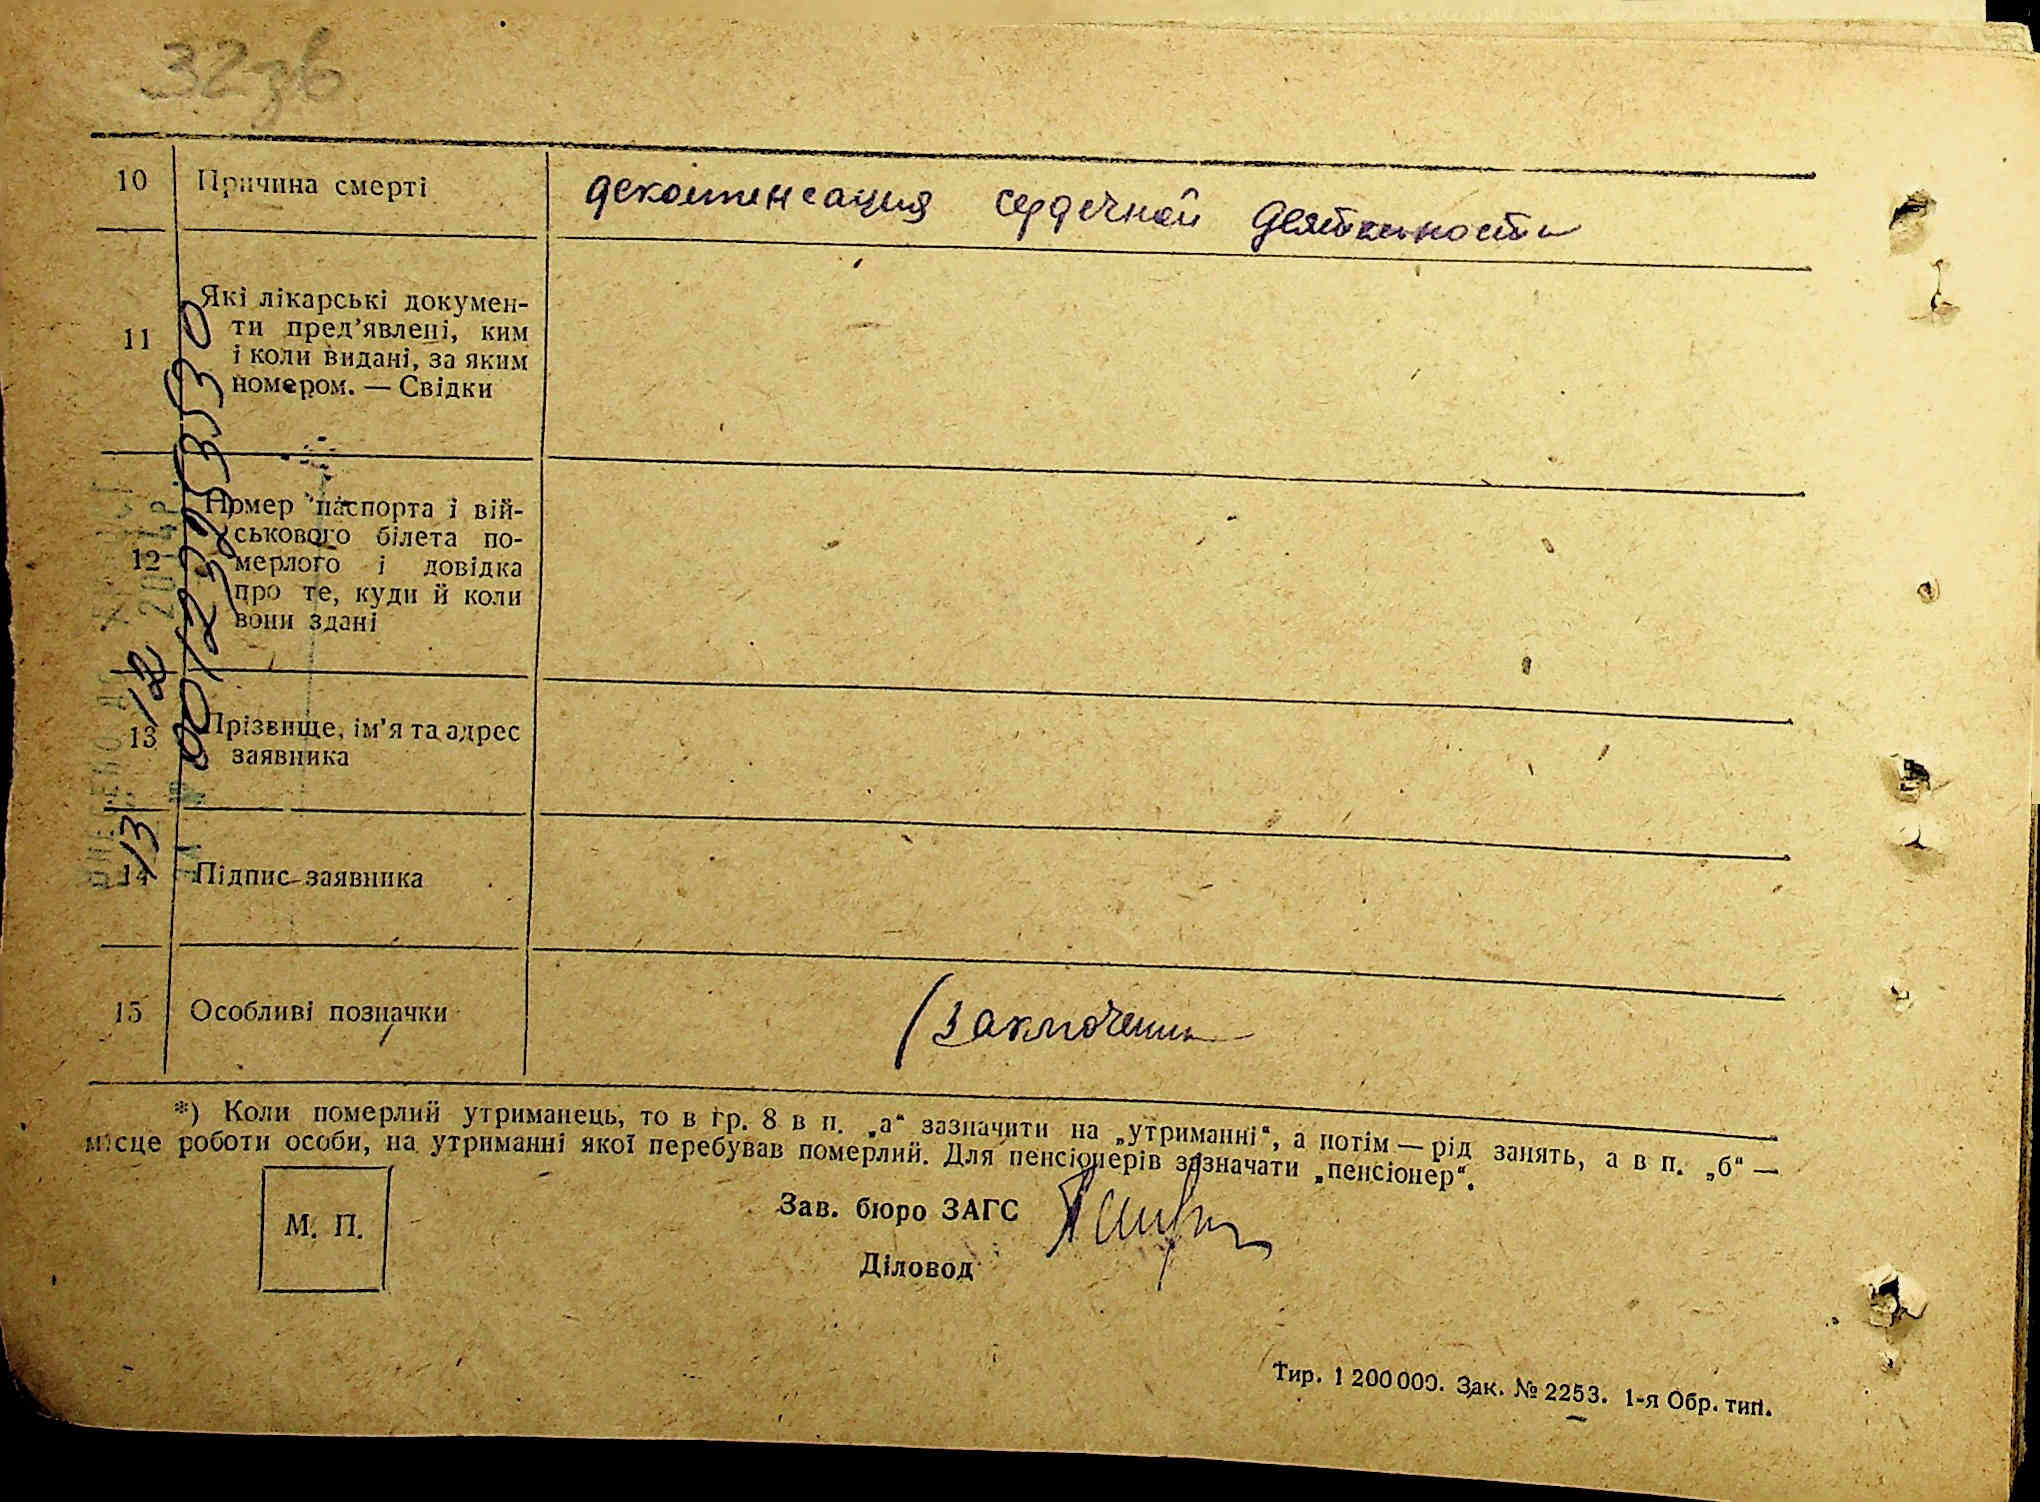 32зв
10 Причина смерті декомпенсация сердечной деятельности
11 Які лікарські докумен-
ти пред’явлені, ким
і коли видані, за яким
номером. — Свідки
12 Номер паспорта і вій-
ськового білета по-
мерлого і довідка
про те, куди й коли
вони здані
13 Прізвище, ім’я та адрес
заявника
14 Підпис заявника
15 Особливі позначки (заключении
*) Коли померлий утриманець, то в гр. 8 в п. „а“ зазначити на „утриманні“, а потім — рід занять, а в п. „б“ —
місце роботи особи, на утриманні якої перебував померлий. Для пенсіонерів зазначати „пенсіонер“.
М. П.
Зав. бюро ЗАГС
Діловод
Тир. 1 200 000. Зак. № 2253. 1-я Обр. тип.
13 12 2014р.